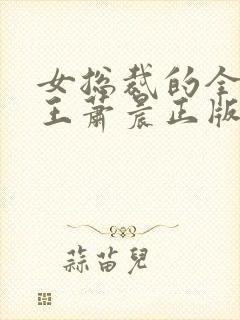 女总裁的全
王萧晨正版
蒜苗儿